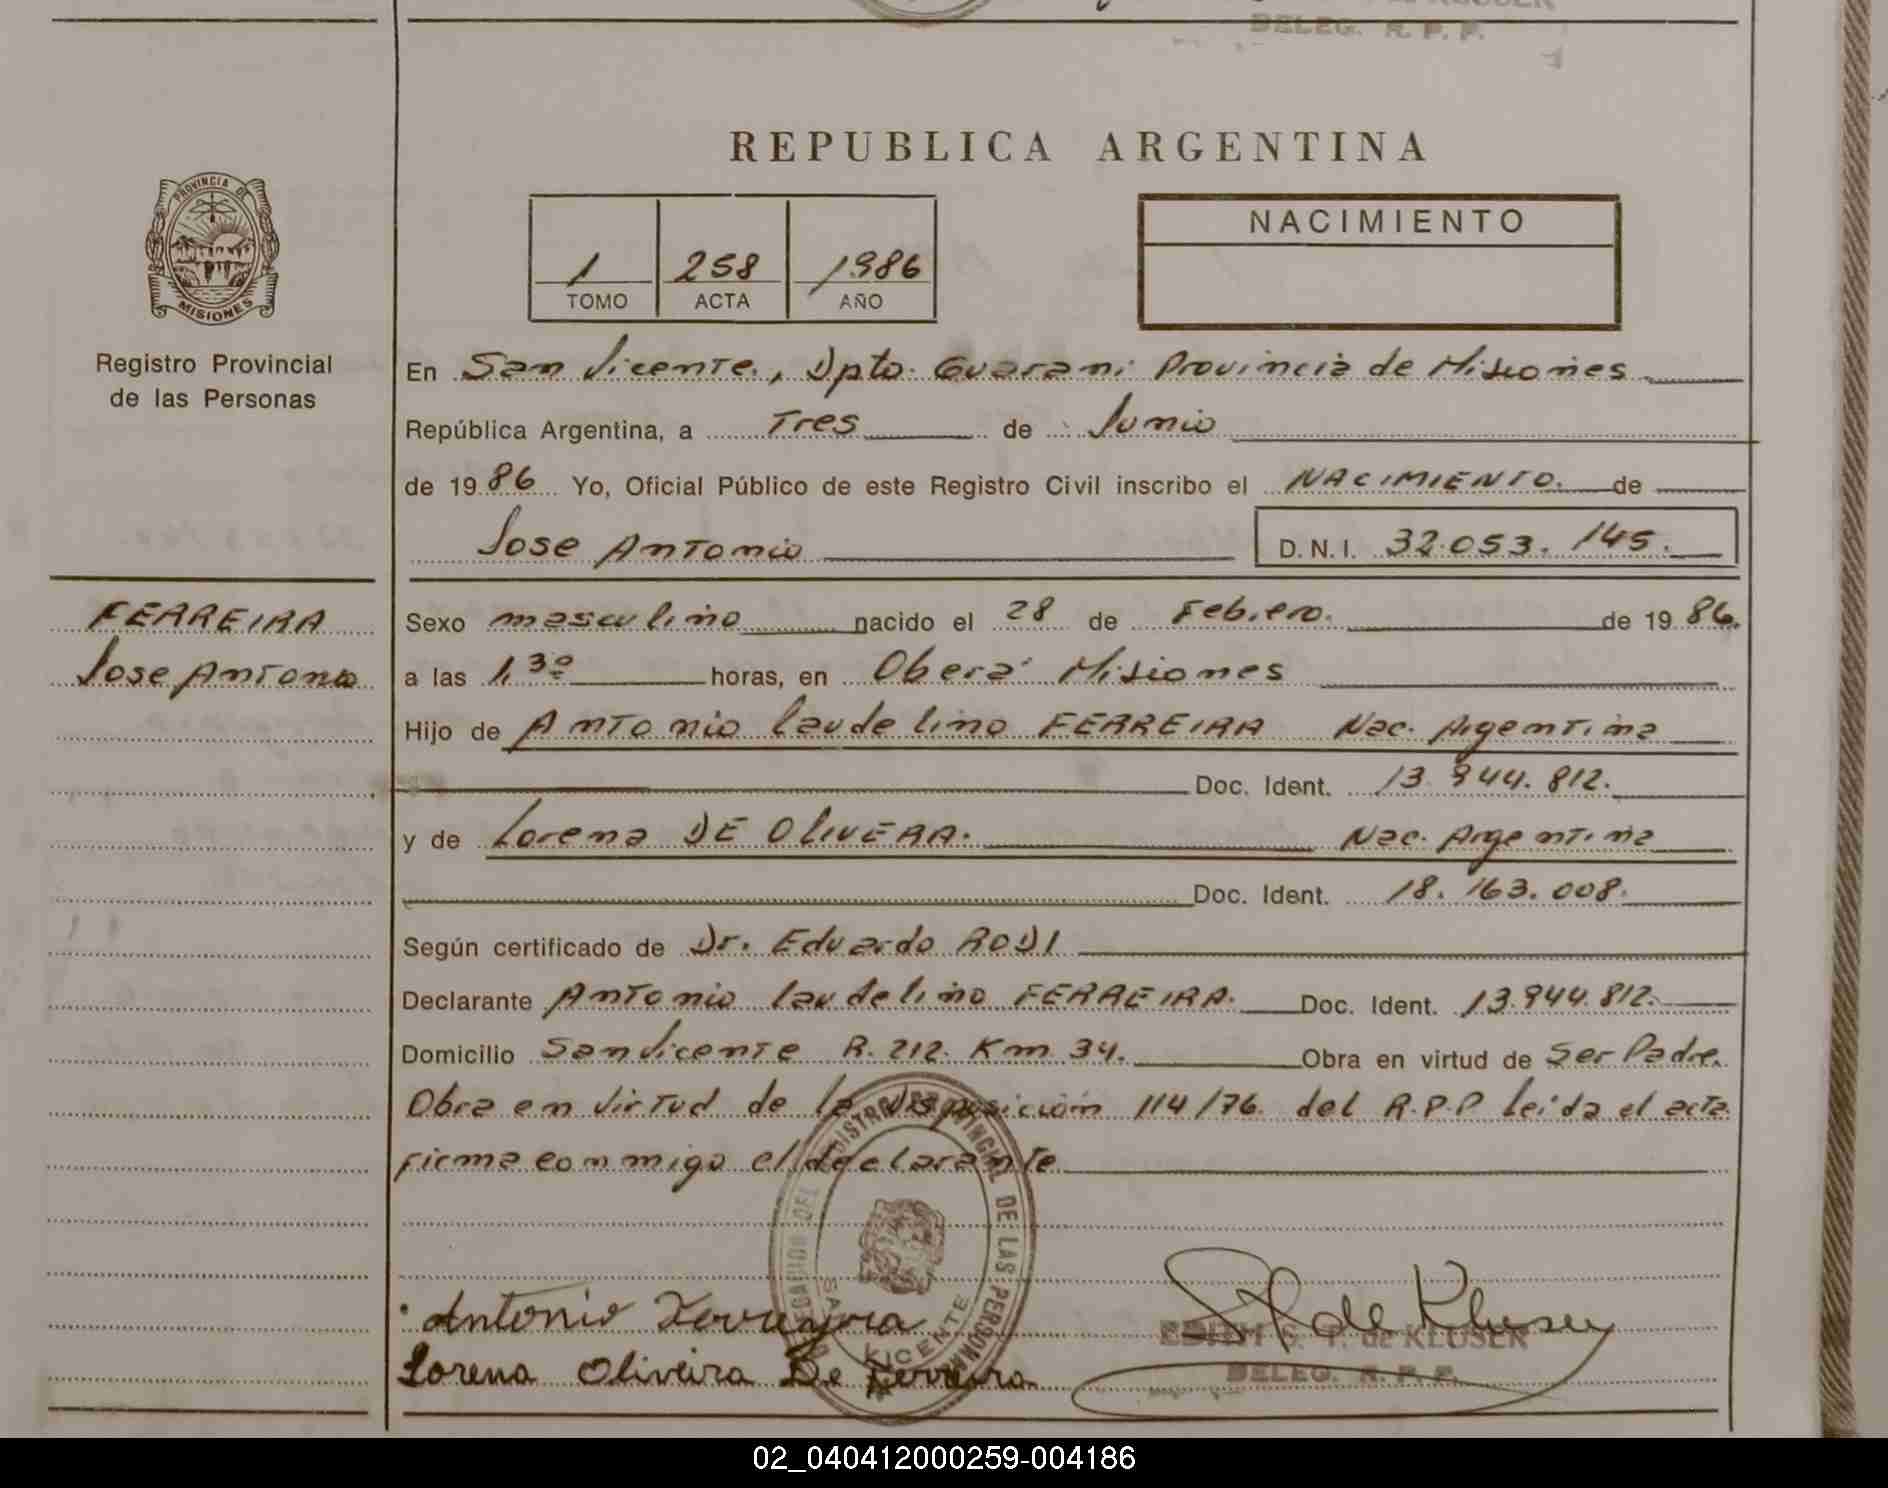 DELEG. R. P. P.
REPUBLICA ARGENTINA
PROVINCIA DE
MISIONES
Registro Provincial
de las Personas
1 258 1986
TOMO ACTA AÑO
NACIMIENTO
En San Vicente, Dpto. Guarani Provincia de Misiones
República Argentina, a Tres de Junio
de 1986 Yo, Oficial Público de este Registro Civil inscribo el NACIMIENTO. de
Jose Antonio D.N.I. 32.053.145.
FERREIRA
Jose Antonio
Sexo masculino nacido el 28 de Febrero. de 1986.
a las 1,30 horas, en Oberá Misiones
Hijo de Antonio Laudelino FERREIRA Nac. Argentina
Doc. Ident. 13.944.812.
y de Lorena DE OLIVERA. Nac. Argentina
Doc. Ident. 18.163.008.
Según certificado de Dr. Eduardo RODI
Declarante Antonio Laudelino FERREIRA. Doc. Ident. 13.944.812.
Domicilio San Vicente R. 212. Km 34. Obra en virtud de Ser Padre.
Obra en virtud de la Disposición 114/76. del R.P.P leida el acta
firma conmigo el declarante
DELEGACION DEL REGISTRO PROVINCIAL DE LAS PERSONAS
SAN VICENTE
Antonio Ferreyra
Lorena Oliveira De Ferreira
de Kluser
EDITH S. F. de KLUSER
DELEG. R. P. P.
02_040412000259-004186